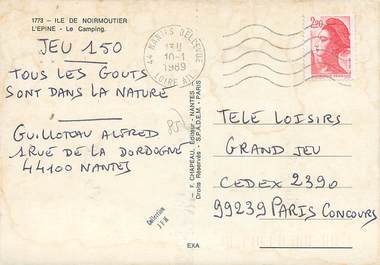 1773 - ILE DE NOIRMOUTIER
L'EPINE - Le Camping.
JEU 150
TOUS LES GOUTS
SONT DANS LA NATURE
GUILLOTEAU ALFRED
1 RUE DE LA DORDOGNE
44100 NANTES
Collection
J F M
F. CHAPEAU, Editeur - NANTES
Droits Réservés - S.P.A.D.E.M. - PARIS
EXA
44 NANTES BELLEVUE
10-1
1989
LOIRE ATL
2,20
TELE LOISIRS
GRAND JEU
CEDEX 2390
99239 PARIS CONCOURS